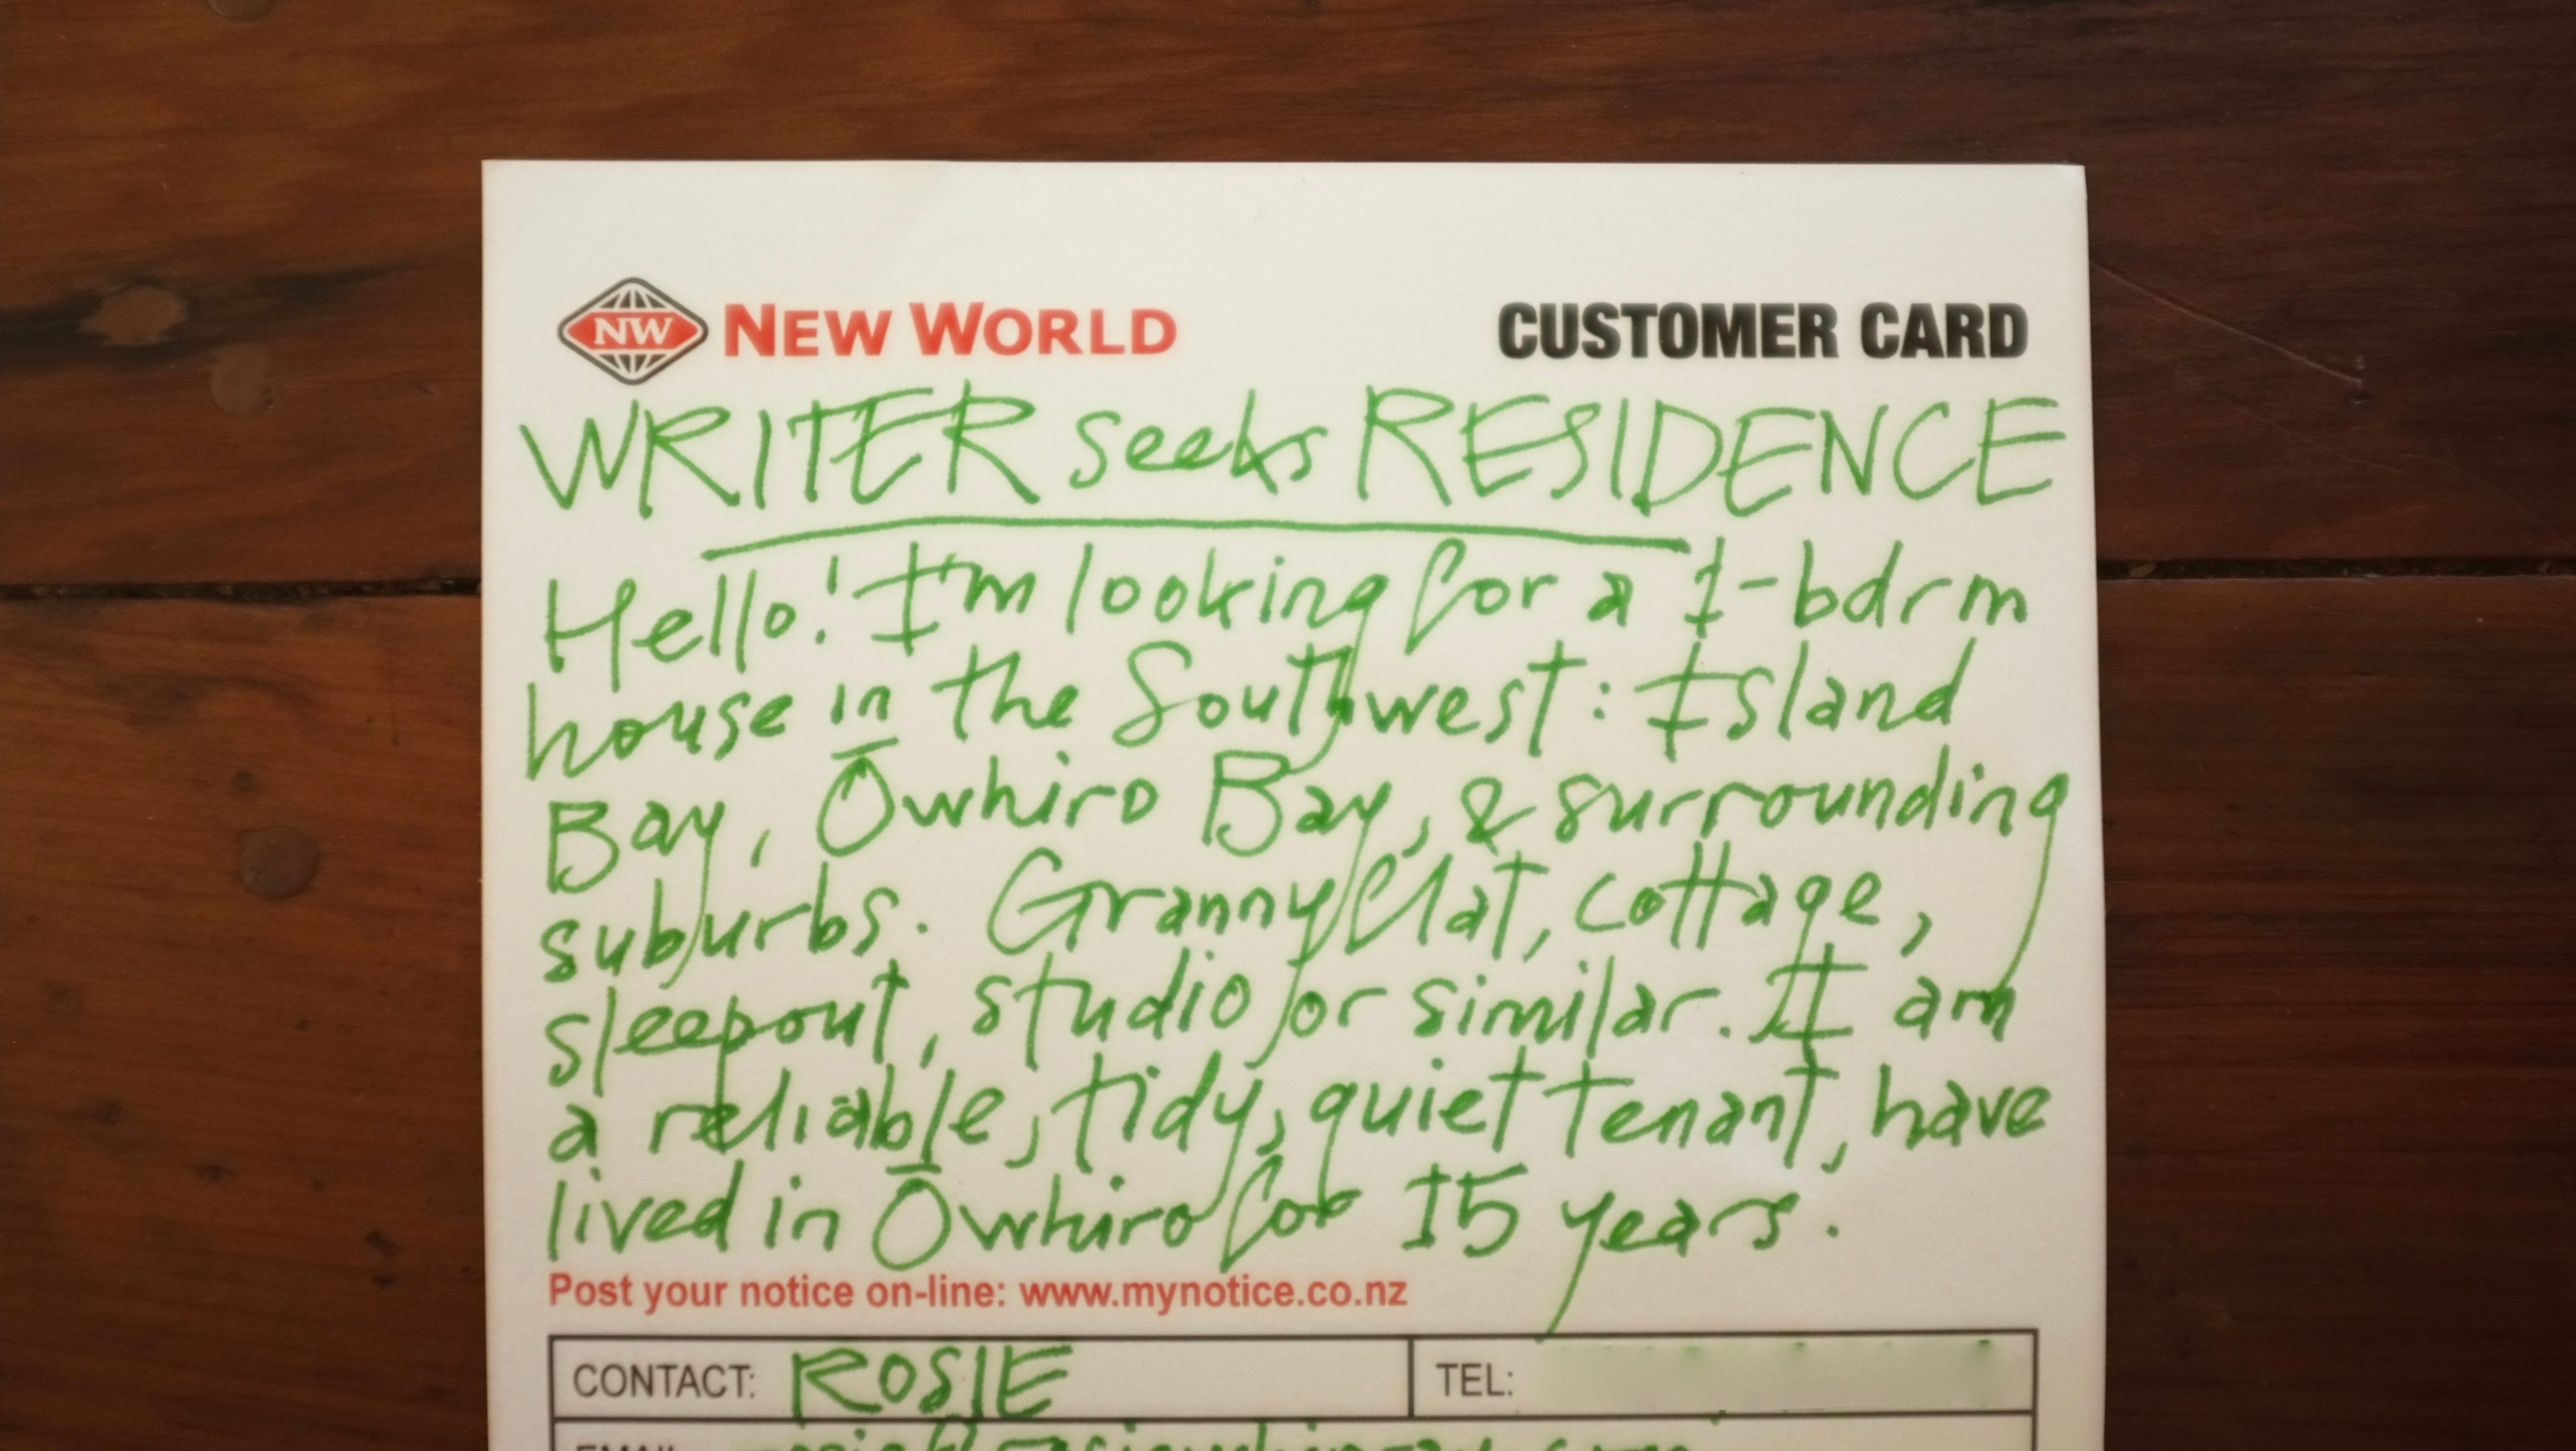 NW NEW WORLD CUSTOMER CARD
WRITER seeks RESIDENCE
Hello! I'm looking for a 1-bdrm
house in the Southwest: Island
Bay, Ōwhiro Bay, & surrounding
suburbs. Granny flat, cottage,
sleepout, studio or similar. I am
a reliable, tidy, quiet tenant, have
lived in Ōwhiro for 15 years.
Post your notice on-line: www.mynotice.co.nz
CONTACT: ROSIE TEL:
EMAIL